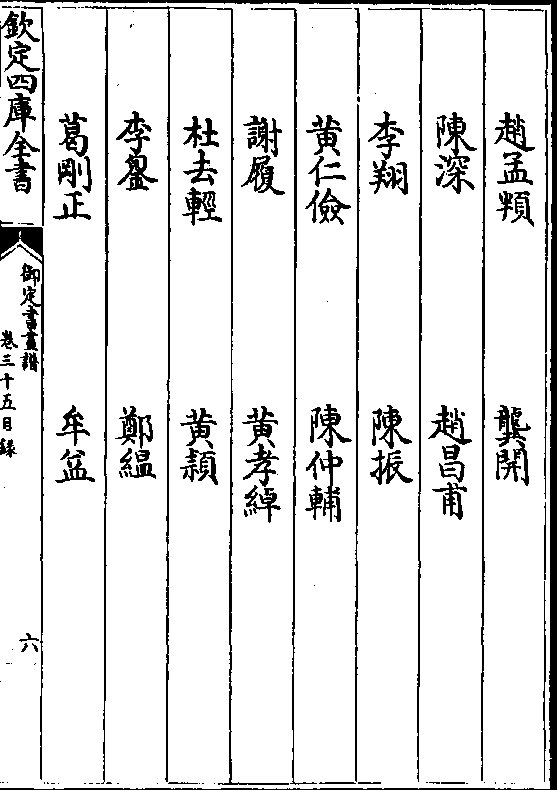 趙孟䫂　龔開
陳深　趙昌甫
李翔　陳振
黄仁儉　陳仲輔
謝履　黄孝綽
杜去輕　黄潁
李鋆　鄭縕
葛剛正　牟益
欽定四庫全書
御定書畫譜
卷三十五目録
六